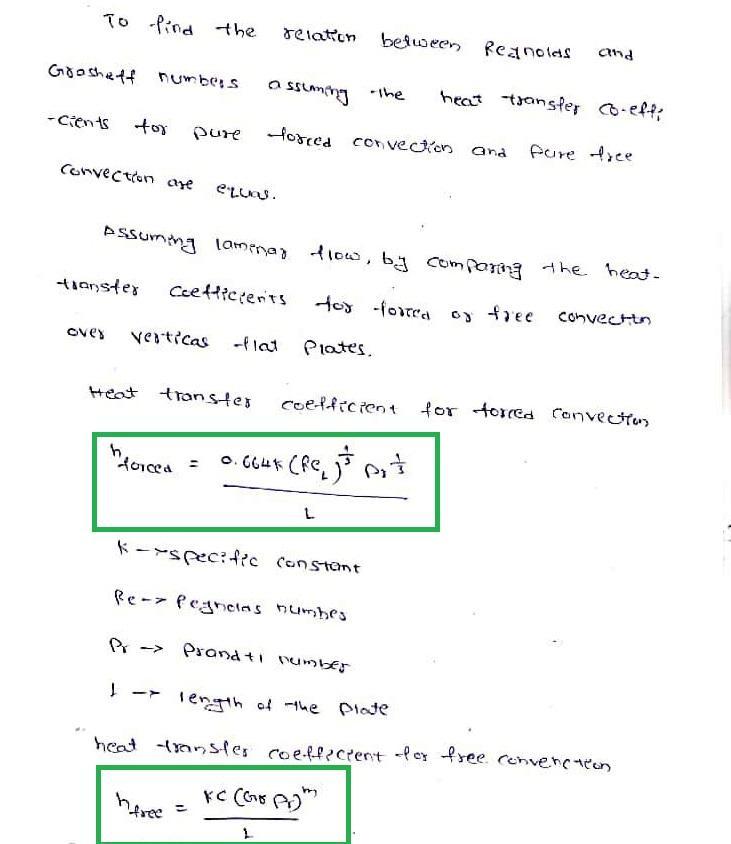 To find the relation between Reynolds and
Groshoff numbers assuming the heat transfer co-effi
-cients for pure forced convection and pure free
convection are equal.
Assuming laminar flow, by comparing the heat-
transfer coefficients for forced or free convection
over vertical flat plates.
Heat transfer coefficient for forced convection
h_forced = 0.664k (Re_L)^(1/3) Pr^(1/3) / L
K → specific constant
Re → Reynolds number
Pr → Prandtl number
l → length of the plate
heat transfer coefficient for free convenction
h_free = KC (Gr Pr)^m / L